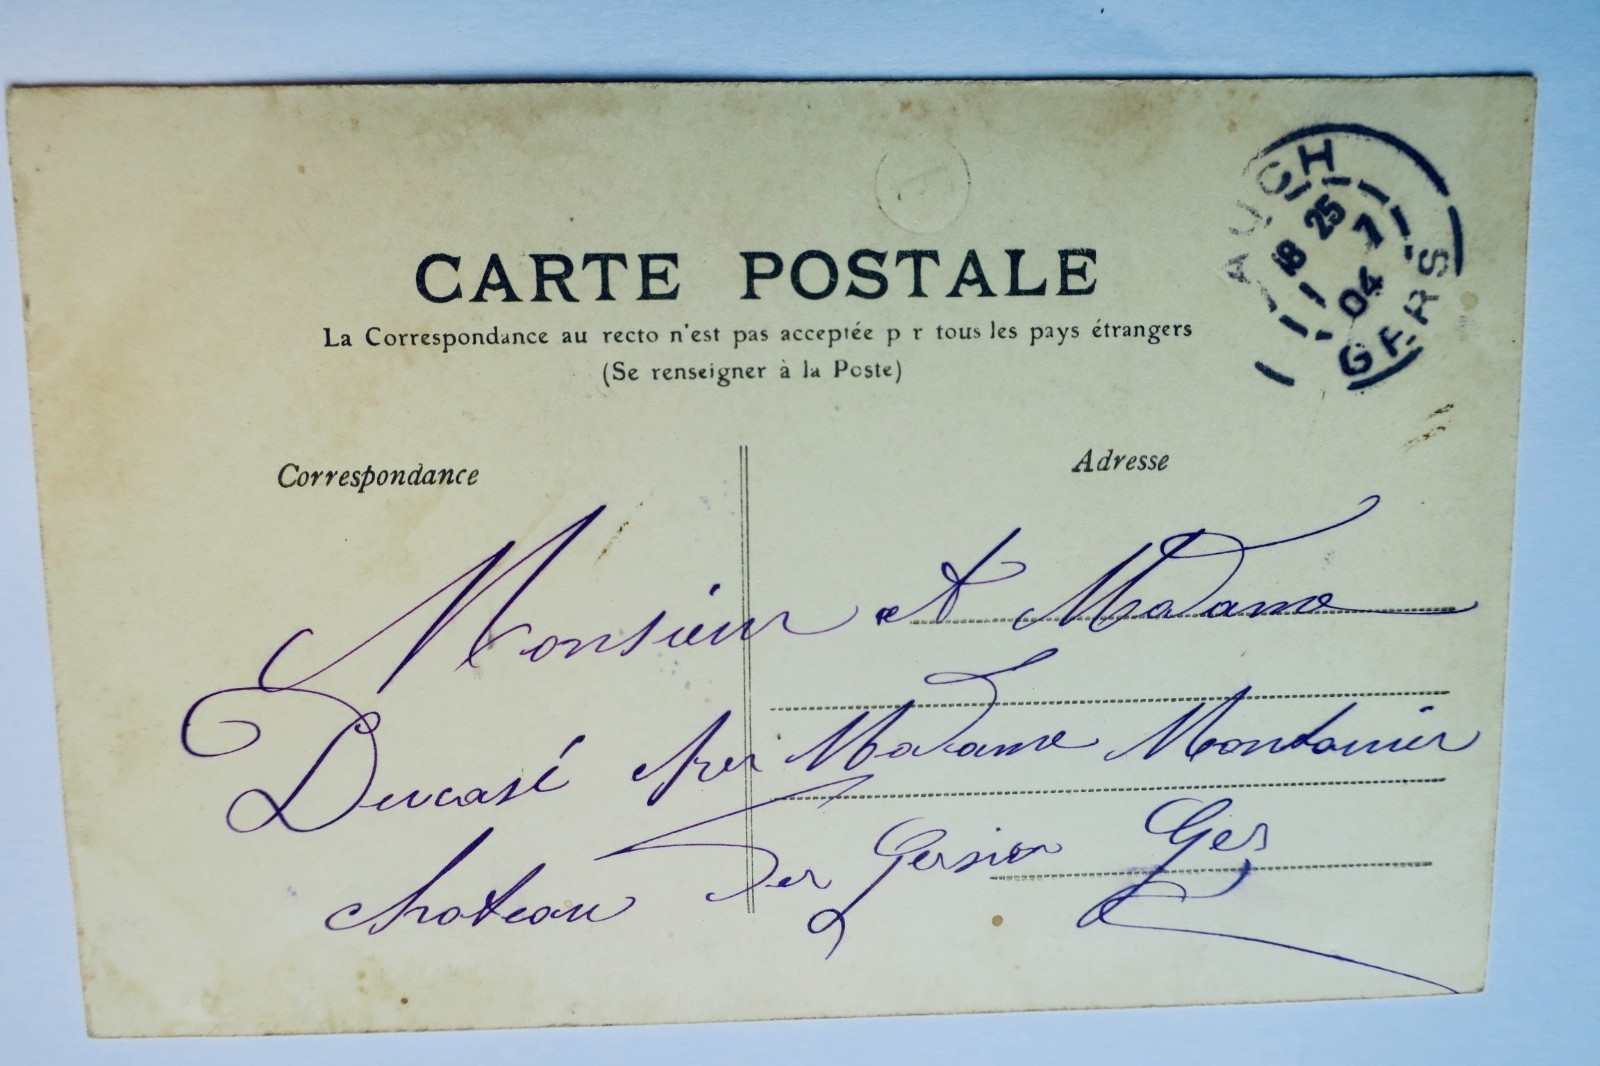 AUCH
18 25
7
04
GERS
CARTE POSTALE
La Correspondance au recto n'est pas acceptée p r tous les pays étrangers
(Se renseigner à la Poste)
Correspondance
Adresse
Monsieur et Madame
Ducasé chez Madame Montanier
chateau der Gersien Gers